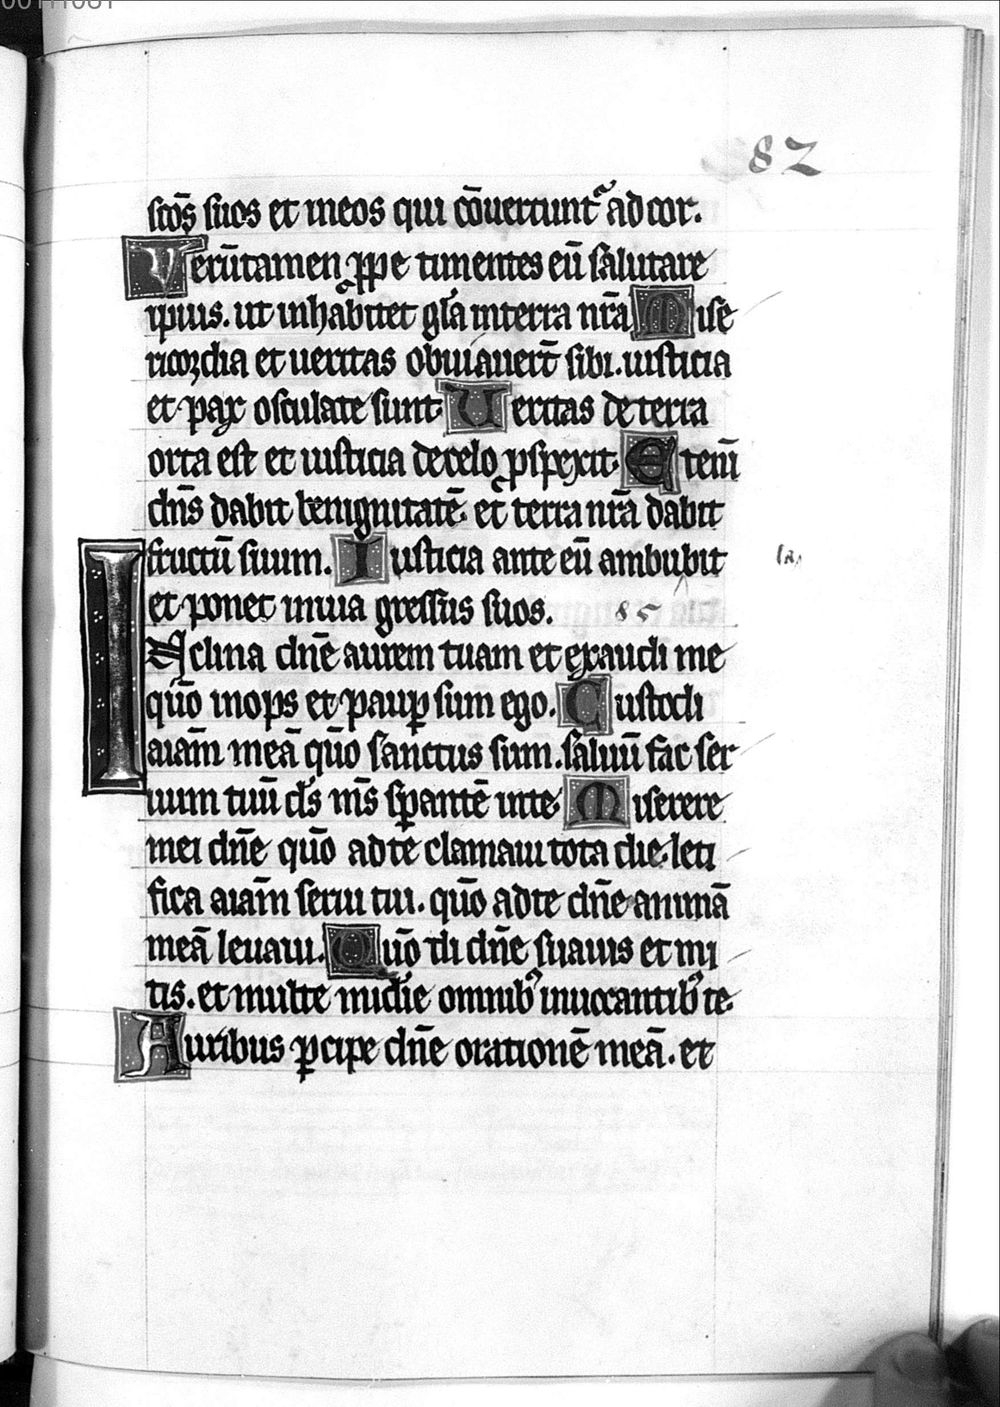 82
scōs suos et meos qui cōuertuntᷓ ad cor.
Verūtamen ꝓpe timentes eū salutare
ipius. ut inhabitet gľa in terra nrā Mise
ricordia et ueritas obuiauerūt sibi. iusticia
et pax osculate sunt Ueritas de terra
orta est et iusticia de celo ꝓspexit. Eteni
dn̄s dabit benignitatē. et terra nrā dabit
fructū suum. Iusticia ante eū ambubit
(la)
et ponet in uia gressus suos. 85
INclina dn̄e aurem tuam et exaudi me
quō inops et pauꝑ sum ego. Custodi
aīam meā quō sanctus sum. saluū fac ser
uum tuū ds̄ ms̄ sꝑantē in te. Miserere
mei dn̄e quō ad te clamaui tota die. leti
fica aīam serui tui. quō ad te dn̄e animā
meā leuaui. Quō tu dn̄e suauis et mi
tis. et multe mīdie omnibꝰ inuocantibꝰ te.
Auribus ꝑcipe dn̄e orationē meā. et